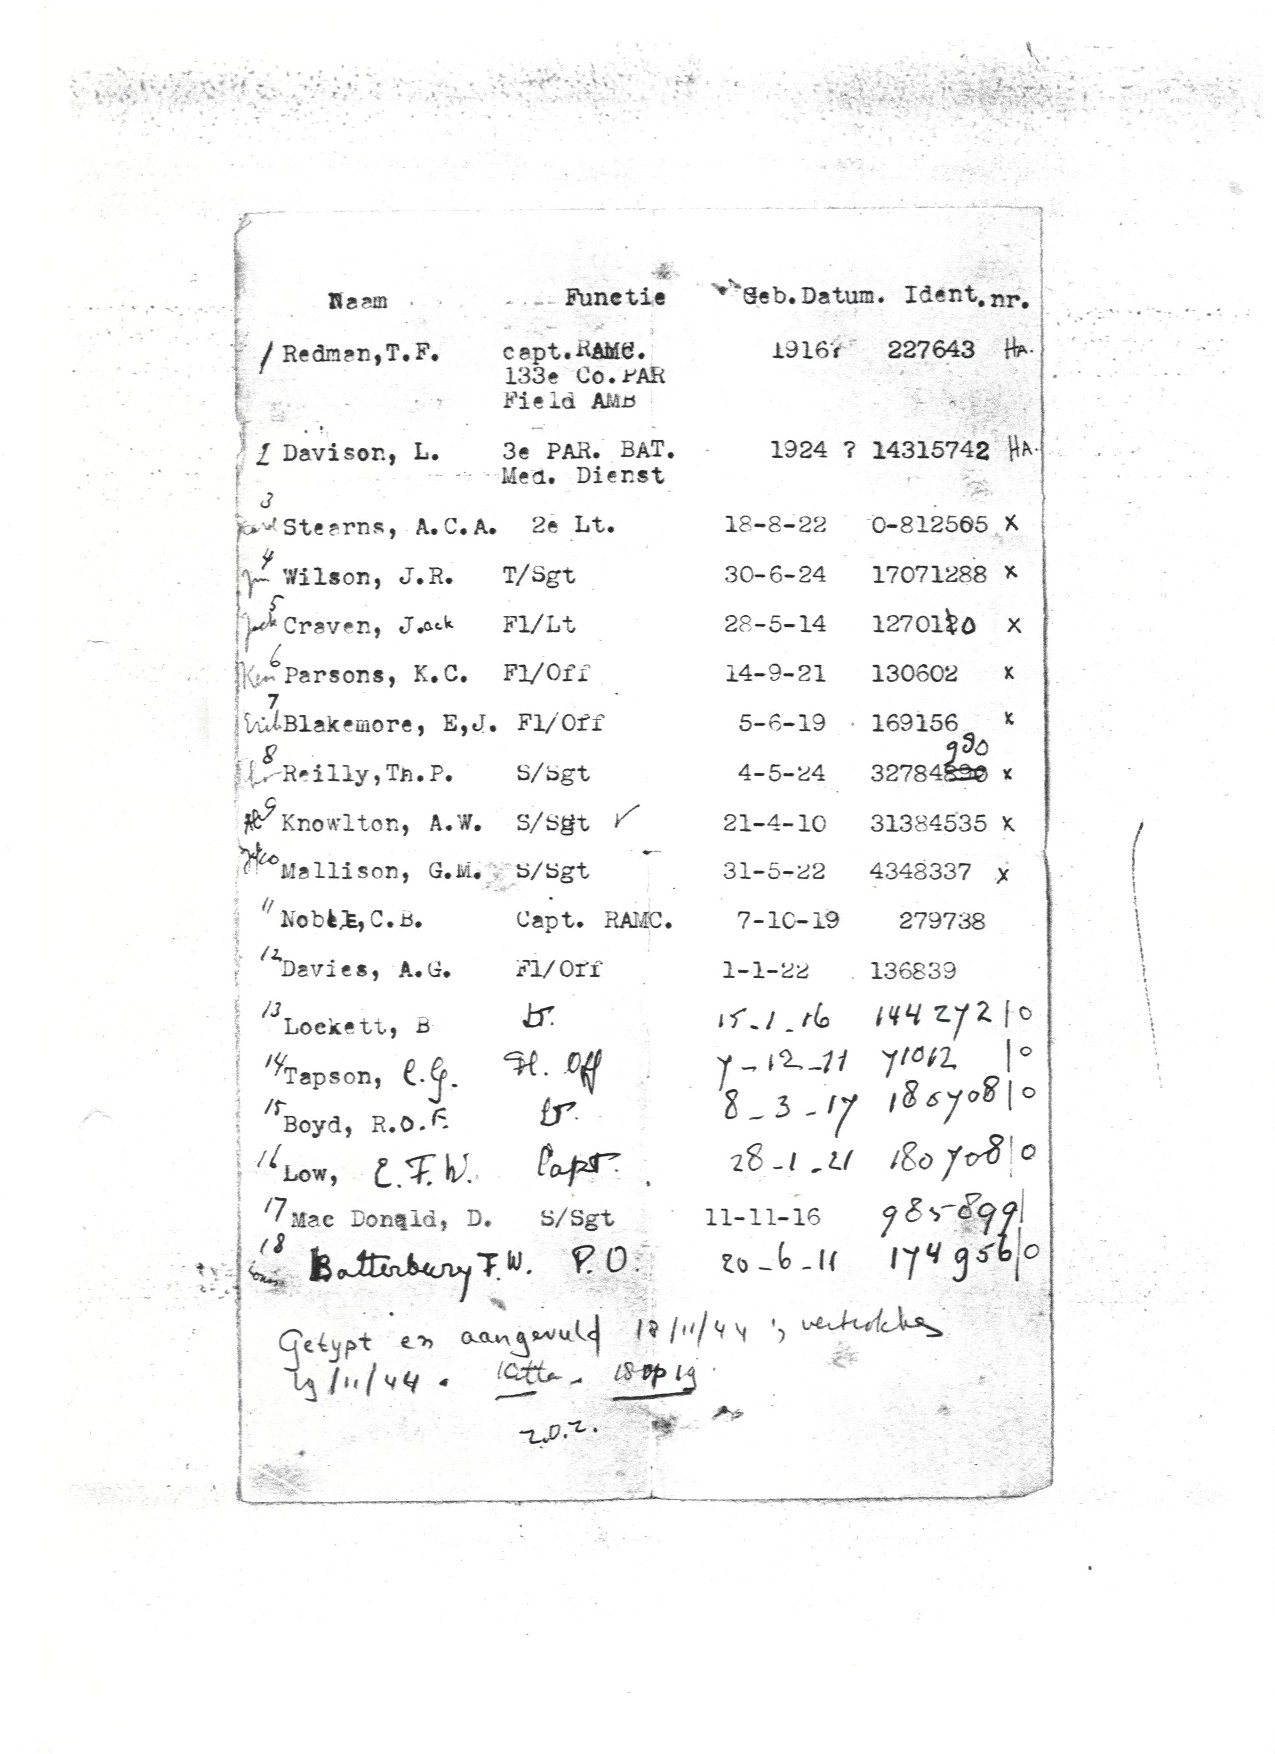 Naam Functie Geb.Datum. Ident.nr.
/ Redman,T.F. capt.RAMC. 1916? 227643 HA.
133e Co.PAR
Field AMB
2 Davison, L. 3e PAR. BAT. 1924 ? 14315742 HA.
Med. Dienst
3
Stearns, A.C.A. 2e Lt. 18-8-22 0-812565 x
4
Jim Wilson, J.R. T/Sgt 30-6-24 17071288 x
5
Jack Craven, J.ack Fl/Lt 28-5-14 1270120 x
6
Ken Parsons, K.C. Fl/Off 14-9-21 130602 x
7
Eric Blakemore, E,J. Fl/Off 5-6-19 169156 x
8 990
Reilly,Th.P. S/Sgt 4-5-24 32784890 x
9
Al Knowlton, A.W. S/Sgt ✓ 21-4-10 31384535 x
10
Mallison, G.M. S/Sgt 31-5-22 4348337 x
11 Noble,C.B. Capt. RAMC. 7-10-19 279738
12 Davies, A.G. Fl/Off 1-1-22 136839
13 Lockett, B Lt. 15-1-16 144272 | 0
14 Tapson, C.G. Fl. Off 7-12-11 71012 | 0
15 Boyd, R.O.F. Lt. 8-3-17 186708 | 0
16 Low, E.F.W. Capt. 28-1-21 180708 | 0
17 Mac Donald, D. S/Sgt 11-11-16 985899 |
18
Batterbury F.W. P.O. 20-6-11 174956 | 0
Getypt en aangevuld 18/11/44 ; vertrokken
19/11/44. 18 op 19
z.o.z.